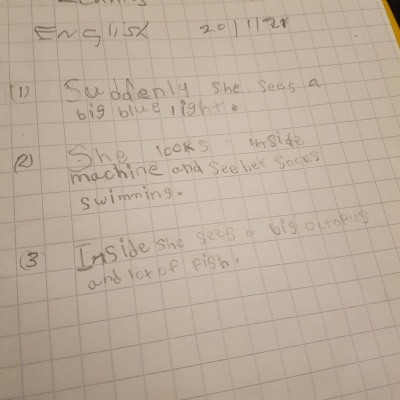 English 20/1/21
(1) Suddenly she sees a
big blue light.
(2) She looks inside
machine and see her socks
swimming.
(3 Inside she sees a big octopus
and lot of fish.